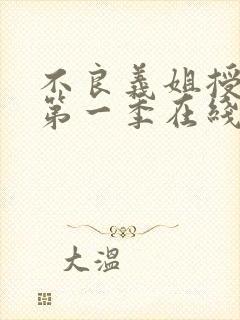 不良義姐授
第一季在綫
大溫